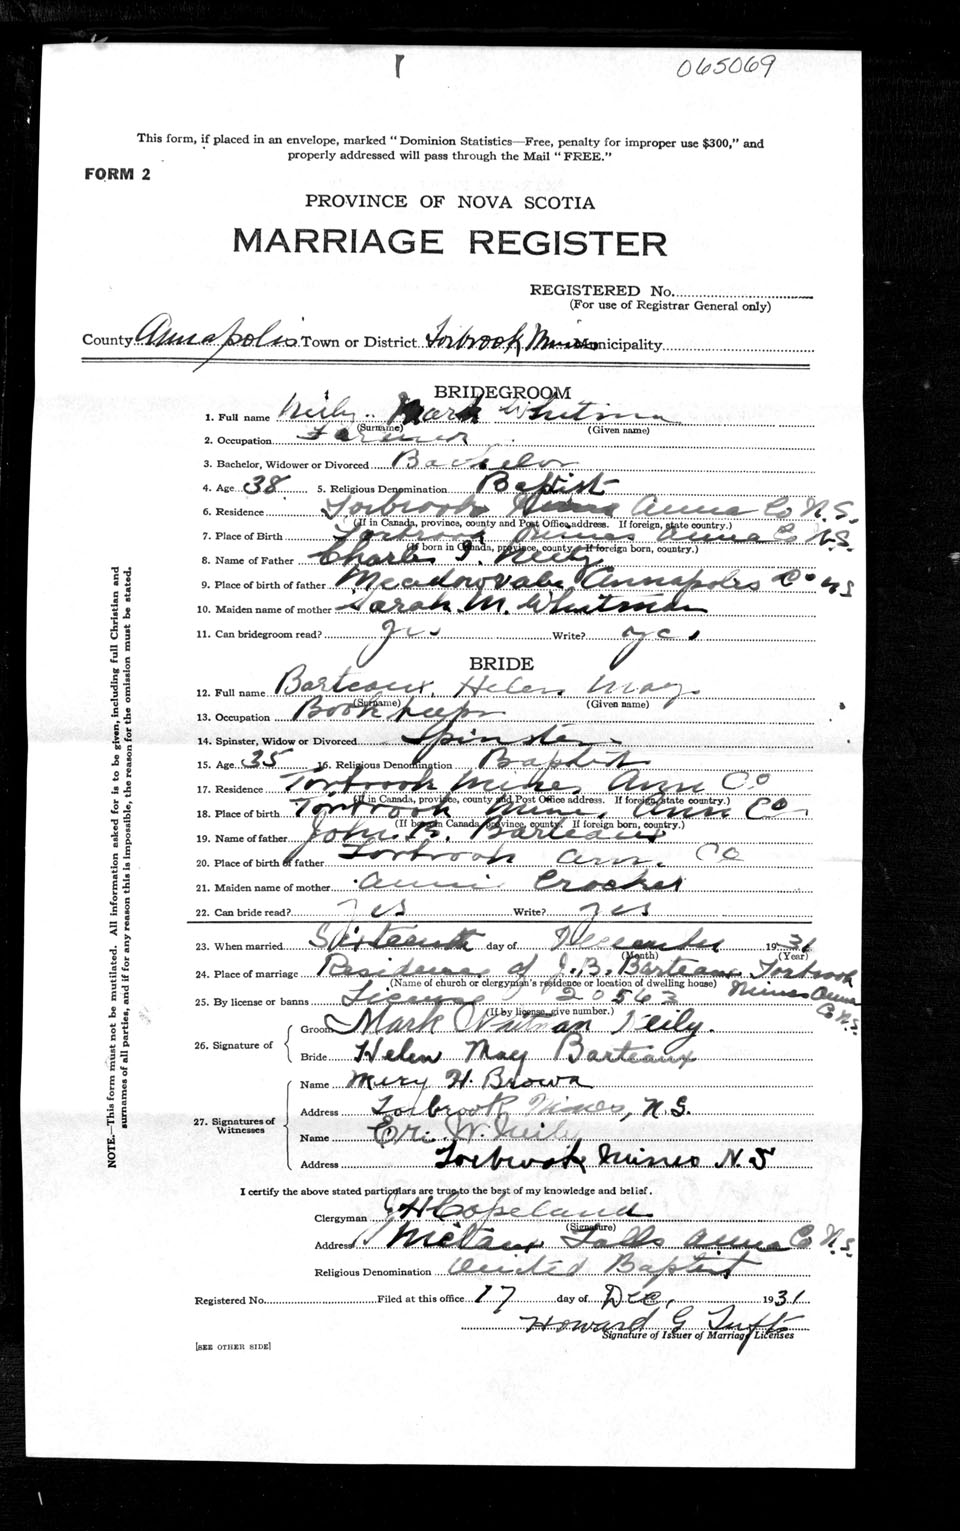 065069
This form, if placed in an envelope, marked "Dominion Statistics—Free, penalty for improper use $300," and
properly addressed will pass through the Mail "FREE."
FORM 2
PROVINCE OF NOVA SCOTIA
MARRIAGE REGISTER
REGISTERED No.
(For use of Registrar General only)
County Annapolis Town or District Torbrook Mines Municipality
BRIDEGROOM
1. Full name Neily Mark Whitman
(Surname) (Given name)
2. Occupation Farmer
3. Bachelor, Widower or Divorced Bachelor
4. Age 38 5. Religious Denomination Baptist
6. Residence Torbrook Mines Anna Co N.S.
(If in Canada, province, county and Post Office address. If foreign, state country.)
7. Place of Birth Torbrook Mines Anna Co N.S.
(If born in Canada, province, county. If foreign born, country.)
8. Name of Father Charles I. Neily
9. Place of birth of father Meadowvale, Annapolis Co NS
10. Maiden name of mother Sarah M. Whitman
11. Can bridegroom read? yes Write? yes
BRIDE
12. Full name Barteaux Helen May
(Surname) (Given name)
13. Occupation Bookkeeper
14. Spinster, Widow or Divorced Spinster
15. Age 35 16. Religious Denomination Baptist
17. Residence Torbrook Mines Ann Co
(If in Canada, province, county and Post Office address. If foreign, state country.)
18. Place of birth Torbrook Mines Ann Co
(If born in Canada, province, county. If foreign born, country.)
19. Name of father John B. Barteaux
20. Place of birth of father Torbrook Ann. Co
21. Maiden name of mother Annie Crocker
22. Can bride read? Yes Write? Yes
23. When married Sixteenth day of December 1931
(Month) (Year)
24. Place of marriage Residence of J. B. Barteaux Torbrook
(Name of church or clergyman's residence or location of dwelling house) Mines Anna
Co N.S.
25. By license or banns License 20563
(If by license, give number.)
26. Signature of
Groom Mark Whitman Neily.
Bride Helen May Barteaux
27. Signatures of Witnesses
Name Mary H. Brown
Address Torbrook Mines, N.S.
Name Eri W. Neily
Address Torbrook Mines N.S
I certify the above stated particulars are true to the best of my knowledge and belief.
Clergyman J H Copeland
(Signature)
Address Mictaux Falls Anna Co N.S.
Religious Denomination United Baptist
Registered No. Filed at this office 17 day of Dec, 1931
Howard G Tufts
Signature of Issuer of Marriage Licenses
[SEE OTHER SIDE]
NOTE.—This form must not be mutilated. All information asked for is to be given, including full Christian and
surnames of all parties, and if for any reason this is impossible, the reason for the omission must be stated.